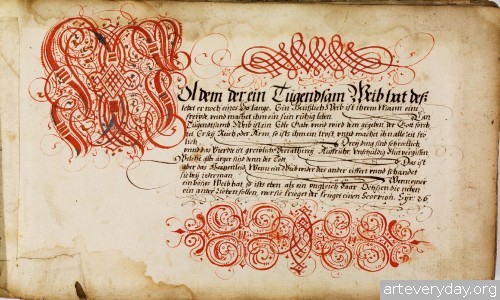 Wol dem der ein Tugendsam Weib hat deß
lebet er noch eines So lange. Ein Heußlich Weib ist ihrem Mann ein
freude, vnnd machet ihm ein fein rühig leben. Ein
Tugentsamb Weib ist ein Edle Gab, vnnd wird dem gegeben, der Gott fürch
tet Er sey Reich oder Arm, so ists ihm ein trost, vnnd machet ihn alle Zeit frö
lich Drey ding sind schrecklich
vnnd das Vierdte ist greulich: Verräthrey, Auffruhr, Vnschuldig Blut vergiessen
Welche alle ärger sind denn der Todt Das ist
aber das Hertzenleid, Wann ein Weib wider das ander eiffert vnnd schendet
sie bey iederman Wenn einer
ein böses Weib hat, so ists eben als ein vngleich Paar Ochssen die neben
ein ander Ziehen sollen, wer sie krieget der krieget einen Scorpion. Syr: 26
arteveryday.org